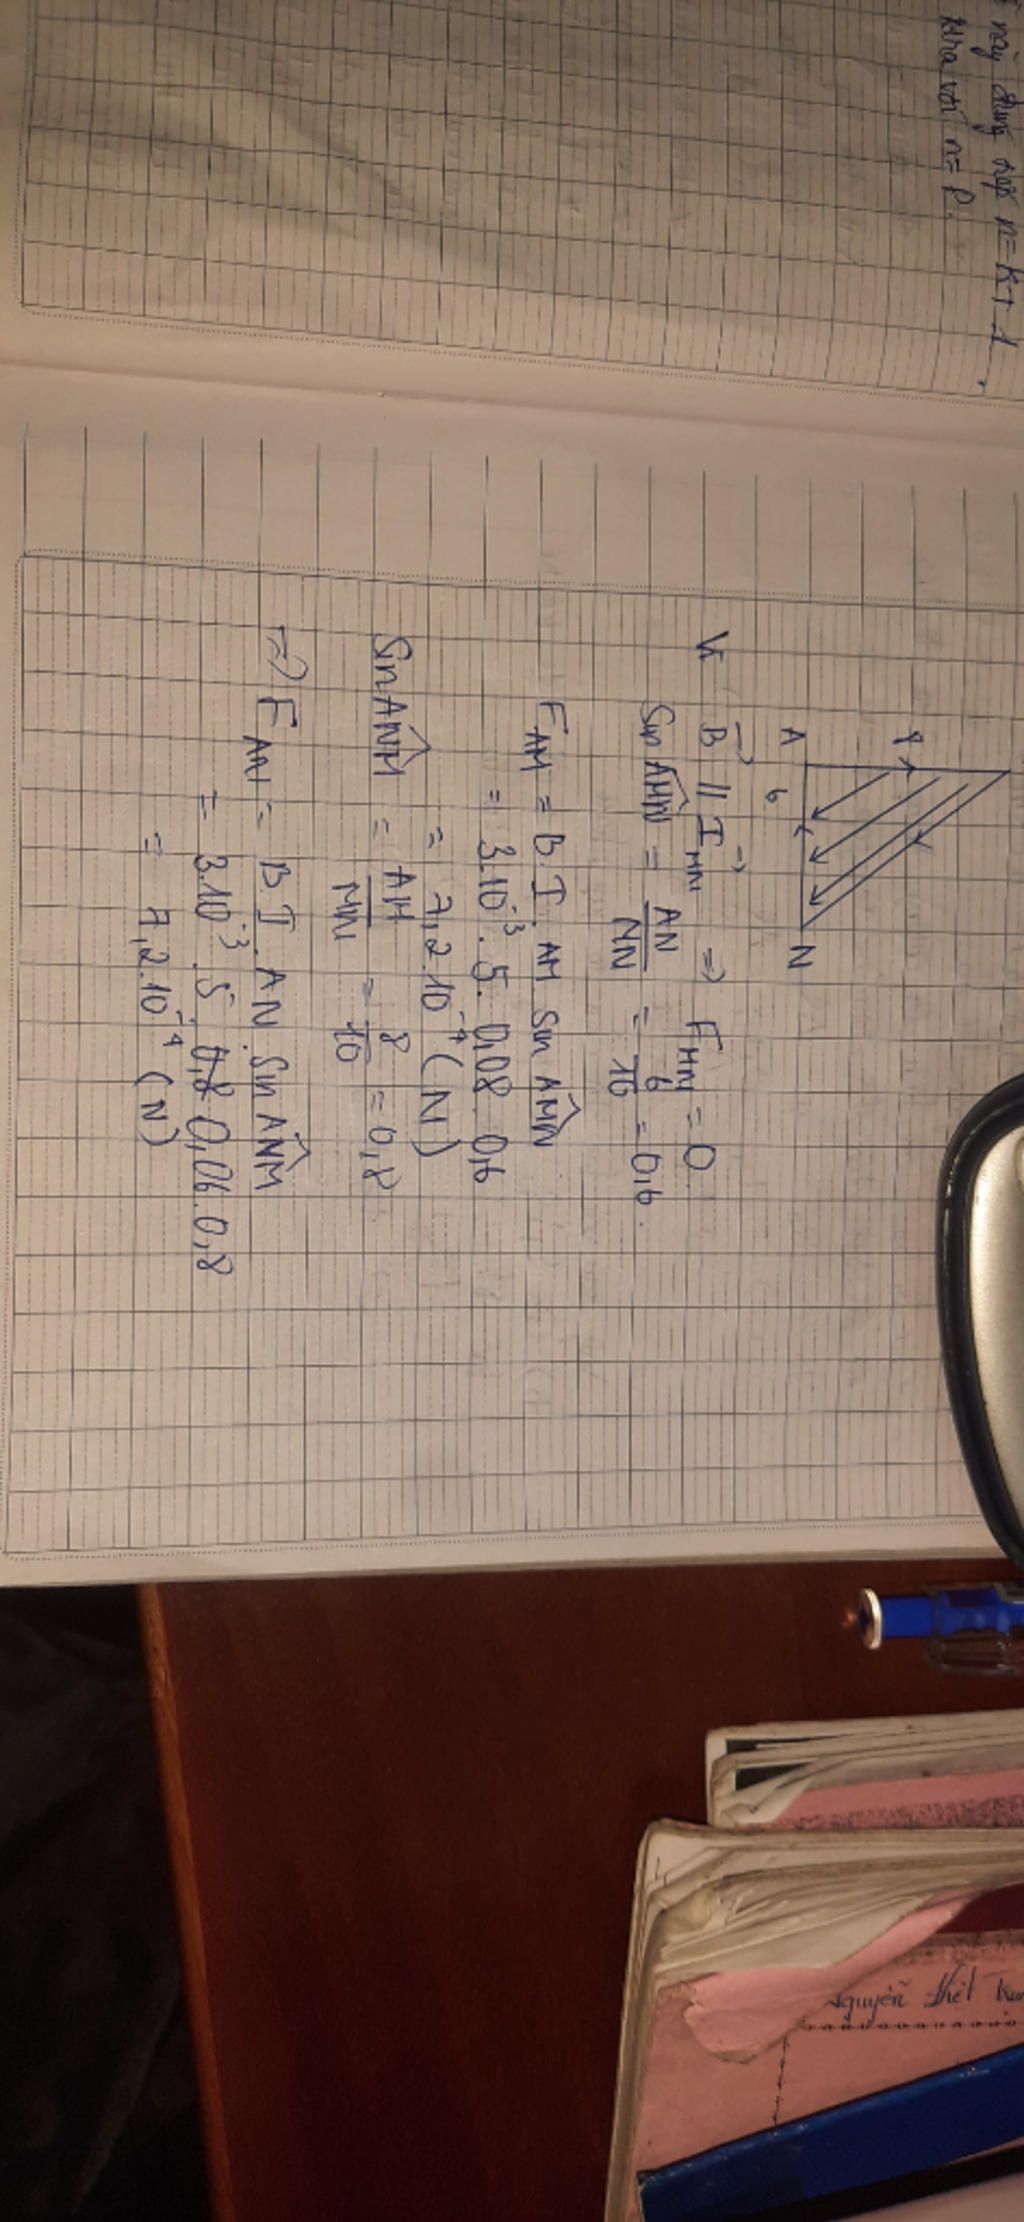 này đúng với n = k + 1
với n = P.
8
A
6
N
Vì B⃗ // I⃗MN => FMN = 0.
Sin AMN̂ = AN/NN = 6/10 = 0,6.
FAM = B.I.AM Sin AMN̂
= 3.10⁻³.5.0,08.0,6
= 7,2.10⁻⁴ (N)
Sin ANM̂ = AM/MN = 8/10 = 0,8
=> FAN = B I.AN.Sin ANM̂
= 3.10⁻³.5.0,06.0,8
= 7,2.10⁻⁴ (N)
Nguyễn